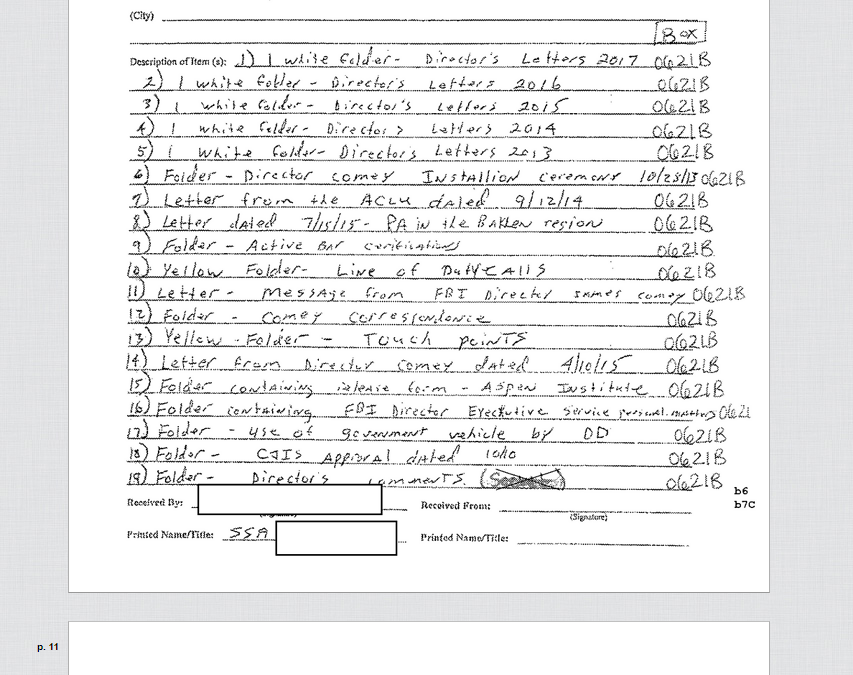 (City)
Box
Description of Item (s): 1) 1 white folder- Director's Letters 2017 0621B
2) 1 white folder - Director's Letters 2016 0621B
3) 1 white folder - Director's Letters 2015 0621B
4) 1 white folder - Director's Letters 2014 0621B
5) 1 white folder - Director's Letters 2013 0621B
6) Folder - Director comey Installion ceremony 10/28/13 0621B
7) Letter from the ACLU dated 9/12/14 0621B
8) Letter dated 7/15/15 - PA in the Bakken region 0621B
9) Folder - Active Bar certifications 0621B
10) Yellow Folder- Line of Duty CAlls 0621B
11) Letter - message from FBI Director James comey 0621B
12) Folder - Comey correspondence 0621B
13) Yellow - Folder - Touch points 0621B
14) Letter from Director Comey dated 4/10/15 0621B
15) Folder containing release form - Aspen Institute 0621B
16) Folder containing FBI Director Executive Service personal matters 0621
17) Folder - use of government vehicle by DD 0621B
18) Folder - CJIS Approval dated 10/10 0621B
19) Folder - Director's comments. 0621B
b6
b7C
Received By: Received From:
(Signature)
Printed Name/Title: SSA Printed Name/Title:
p. 11